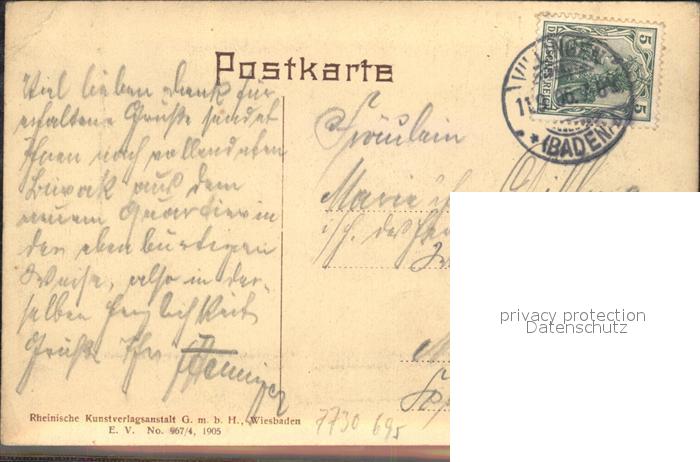 Postkarte
Viel lieben Dank für
erhaltene Grüße sendet
Ihnen nach vollendetem
Biwak aus dem
neuen Quartier in
der ebenbürtigen
Weise, also in der-
selben Herzlichkeit
Grüße Ihr
Fräulein
Marie
VILLINGEN
(BADEN)
5
5
DEUTSCHES REICH
privacy protection
Datenschutz
Rheinische Kunstverlagsanstalt G. m. b. H., Wiesbaden
E. V. No. 967/4, 1905
7730 695